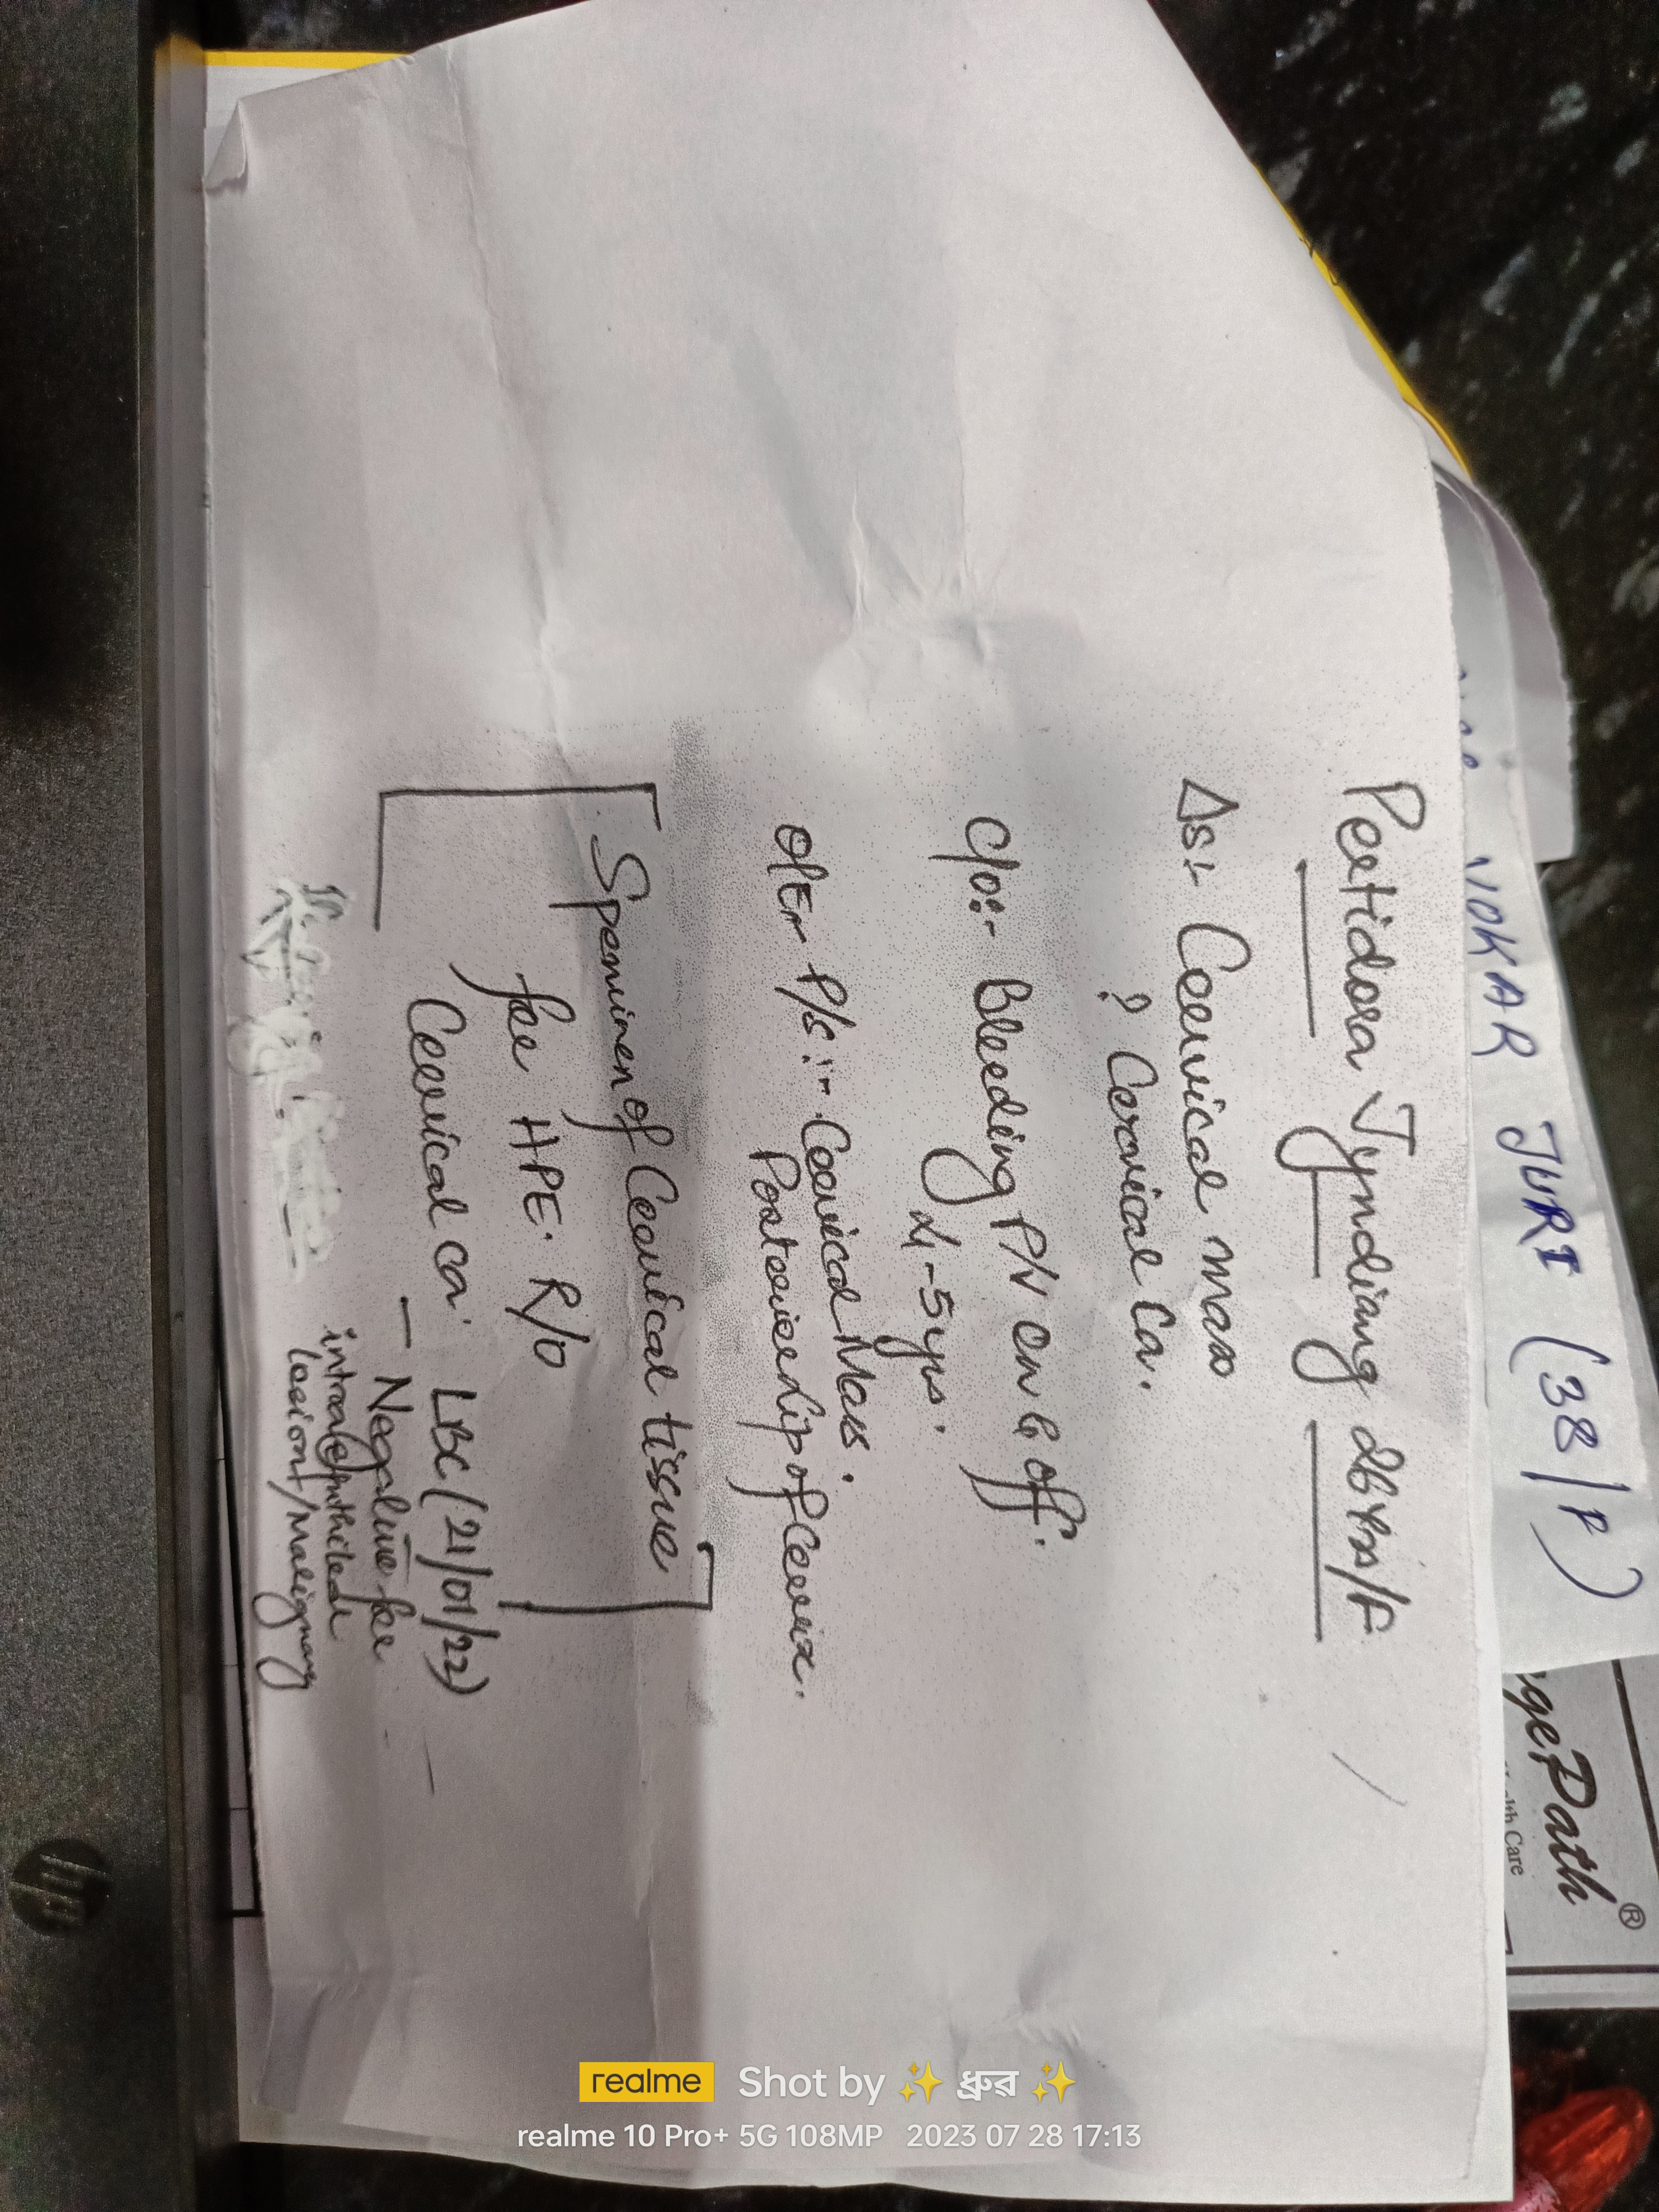 Peetidora Tyndiang 26 yrs/F
Δs:- Cervical mass
? Cervical Ca.
C/o:- Bleeding P/V on & off.
4-5 yrs.
O/E:- P/S:- Cervical Mass.
Posterior Lip of Cervix.
Speminen of Cervical tissue
for HPE. R/O
Cervical ca.
LBC (21/01/22)
— Negative for
intraepithelial
lesiont/Malignancy
NOKAR JURI (38/P)
gePath®
lth Care
hp
realme Shot by ✨ ধ্রুৱ ✨
realme 10 Pro+ 5G 108MP 2023 07 28 17:13